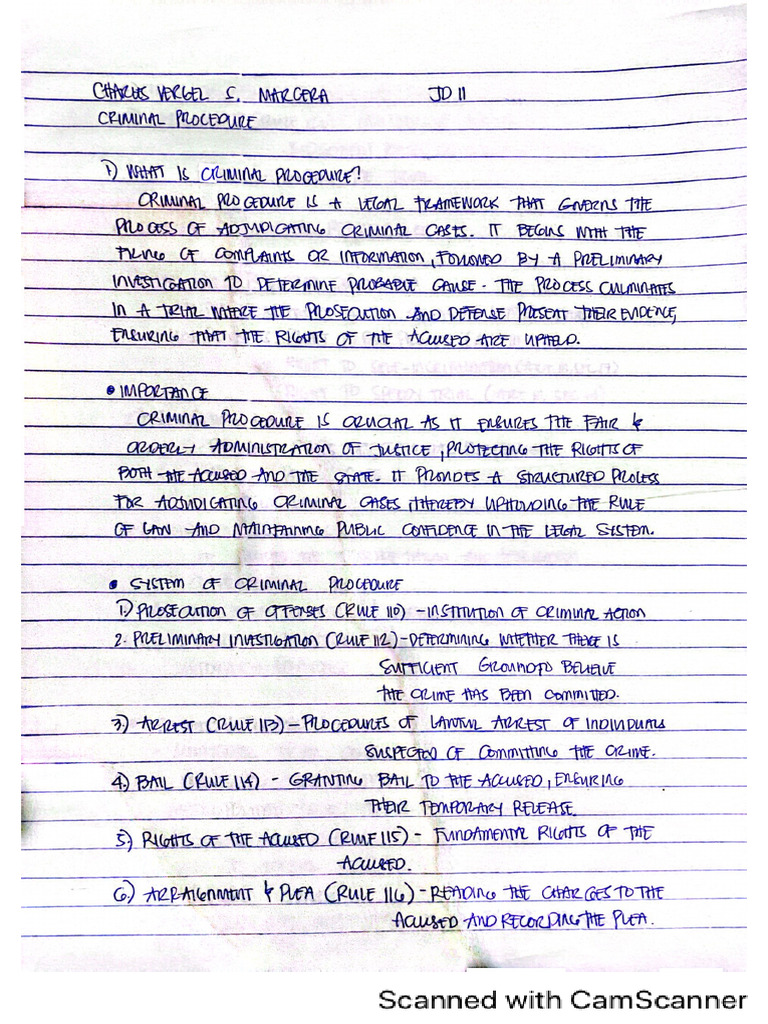 CHARLES VERGEL S. MARCERA JD 11
CRIMINAL PROCEDURE
1) WHAT IS CRIMINAL PROCEDURE?
CRIMINAL PROCEDURE IS A LEGAL FRAMEWORK THAT GOVERNS THE
PROCESS OF ADJUDICATING CRIMINAL CASES. IT BEGINS WITH THE
FILING OF COMPLAINTS OR INFORMATION, FOLLOWED BY A PRELIMINARY
INVESTIGATION TO DETERMINE PROBABLE CAUSE. THE PROCESS CULMINATES
IN A TRIAL WHERE THE PROSECUTION AND DEFENSE PRESENT THEIR EVIDENCE,
ENSURING THAT THE RIGHTS OF THE ACCUSED ARE UPHELD.
• IMPORTANCE
CRIMINAL PROCEDURE IS CRUCIAL AS IT ENSURES THE FAIR &
ORDERLY ADMINISTRATION OF JUSTICE, PROTECTING THE RIGHTS OF
BOTH THE ACCUSED AND THE STATE. IT PROVIDES A STRUCTURED PROCESS
FOR ADJUDICATING CRIMINAL CASES, THEREBY UPHOLDING THE RULE
OF LAW AND MAINTAINING PUBLIC CONFIDENCE IN THE LEGAL SYSTEM.
• SYSTEM OF CRIMINAL PROCEDURE
1) PROSECUTION OF OFFENSES (RULE 110) - INSTITUTION OF CRIMINAL ACTION
2. PRELIMINARY INVESTIGATION (RULE 112) - DETERMINING WHETHER THERE IS
SUFFICIENT GROUND TO BELIEVE
THE CRIME HAS BEEN COMMITTED.
3) ARREST (RULE 113) - PROCEDURES OF LAWFUL ARREST OF INDIVIDUALS
SUSPECTED OF COMMITTING THE CRIME.
4) BAIL (RULE 114) - GRANTING BAIL TO THE ACCUSED, ENSURING
THEIR TEMPORARY RELEASE.
5) RIGHTS OF THE ACCUSED (RULE 115) - FUNDAMENTAL RIGHTS OF THE
ACCUSED.
6) ARRAIGNMENT & PLEA (RULE 116) - READING THE CHARGES TO THE
ACCUSED AND RECORDING THE PLEA.
Scanned with CamScanner